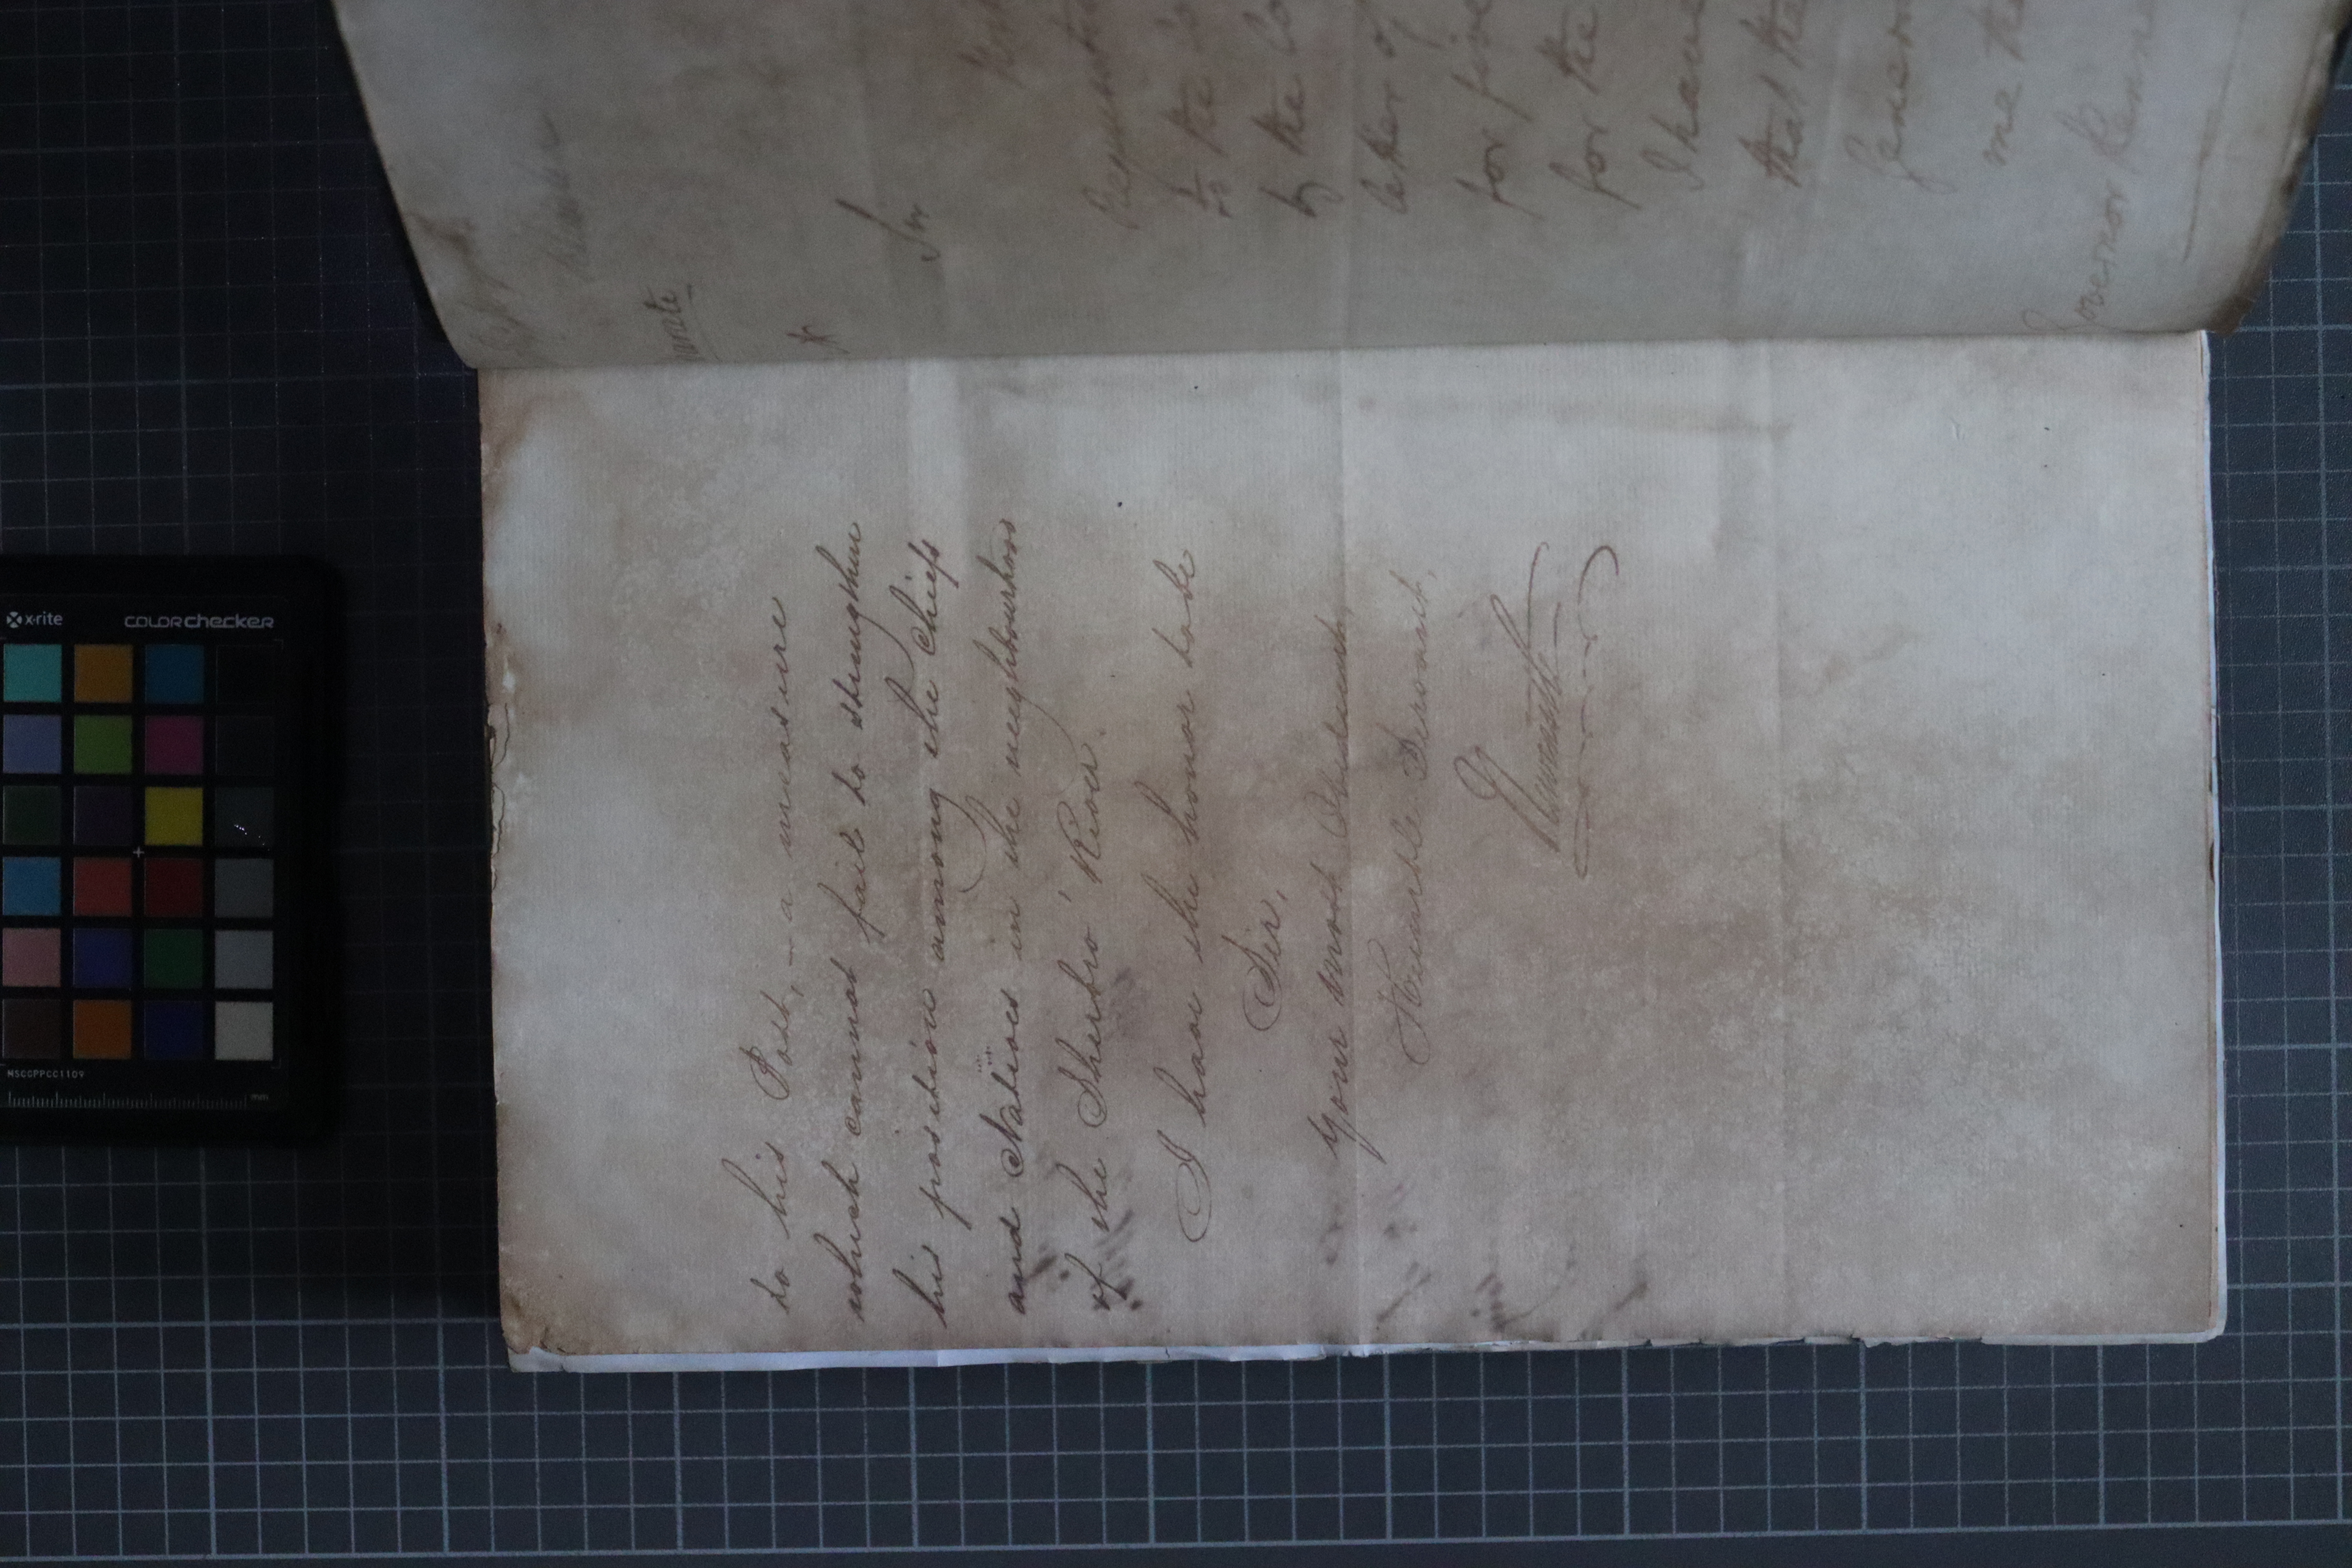 to his Post, – a measure
which cannot fail to strengthen
his position among the Chiefs
and Natives in the neighbourhood
of the Sherbro' River.
I have the honor to be
Sir,
Your most Obedient,
Humble Servant,
Sir
to the
by the Co
letter of
for five
for the
I have
that the
me the
Governor Kenne
x-rite colorchecker
MSCGPPCC1109
mm